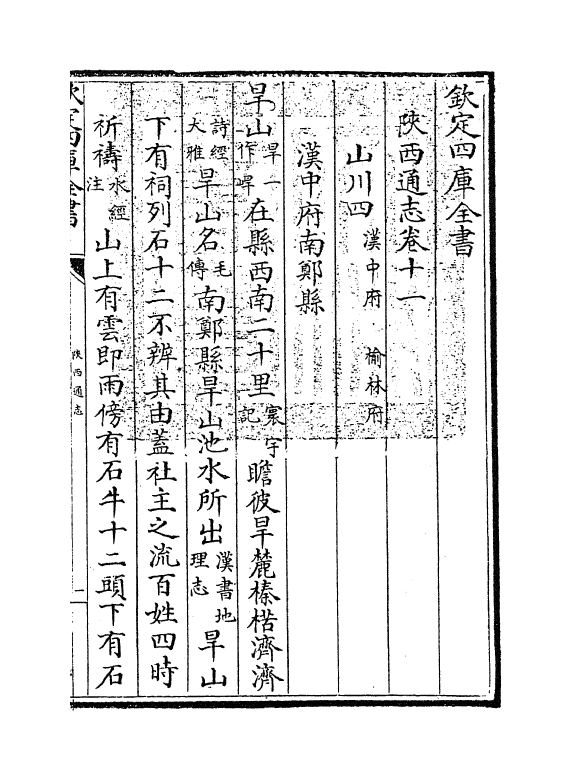 欽定四庫全書
陜西通志卷十一
山川四 漢中府 榆林府
漢中府南鄭縣
旱山 旱一作㫰 在縣西南二十里 寰宇記 瞻彼旱麓榛楛濟濟
詩經大雅 旱山名 毛傳 南鄭縣旱山池水所出 漢書地理志 旱山
下有祠列石十二不辨其由蓋社主之流百姓四時
祈禱 水經注 山上有雲即雨傍有石牛十二頭下有石
欽定四庫全書
陜西通志
一